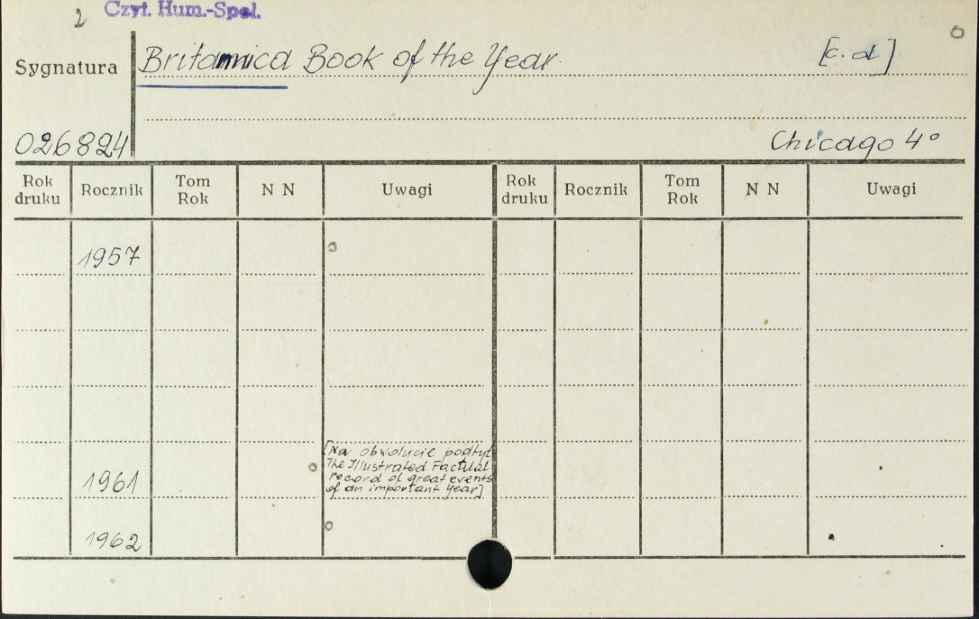 2 Czyt. Hum.-Społ.
Sygnatura Britannica Book of the Year [c.d]
026824 Chicago 4°
Rok druku Rocznik Tom Rok N N Uwagi Rok druku Rocznik Tom Rok N N Uwagi
1957
[Na obwolucie podtyt
The Illustrated Factual
1961 record of great events
of an important year]
1962